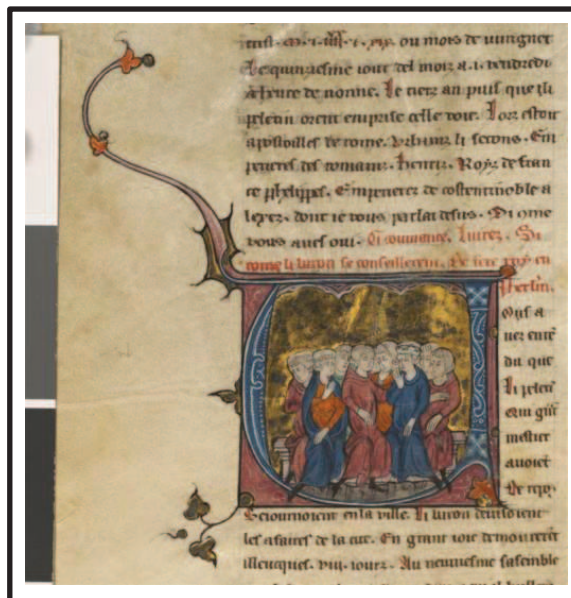 ou mois de iuingnet
Le quinzesme iour del mois a .i. vendredi
a leure de nonne. Le tierz an puis que li
pelerin orent emprise celle voie. Lors estoit
apostoilles de rome. Vrbains li secons. Em
pereres des romains. henris. Roys de fran
ce phelippes. Emperieres de costentinoble a
lexes. dont ie vous parlai desus. Si ome
vous aues oui. Ci coumence. liures. Si
come li baron se conseillerent. de fere roy en
iherlm.
Ous a
uez ente
du que
li peleri
qui gnt
mestier
auoiet
de repo
Seiournoient en la ville. li baron deuisoient
les afaires de la cite. En grant ioie demourerent
illeucques. viii. iours. Au neuuiesme sasemble